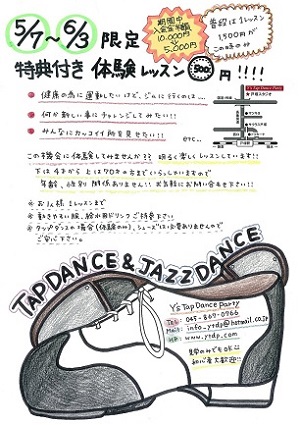 5/7～6/3 限定
期間中
入会金半額
10,000円
5,000円
普段は1レッスン
1,500円が
この時のみ
特典付き 体験レッスン 500円!!!!
健康の為に運動したいけど、ジムに行くのは…
何か新しい事にチャレンジしてみたい!!
みんなにカッコイイ所を見せたい!! etc…
Y's Tap Dance Party
この機会に体験してみませんか?? 明るく楽しくレッスンしています!!
下は4才から上は70才の方までいらっしゃいますので
年齢、性別 関係ありません!! お気軽にお問い合せ下さい!!
お1人様 1レッスンまで
動きやすい服、飲み物ご持参下さい
タップダンスの場合(体験のみ)、シューズは必要ありませんので
ご安心下さい。
TAP DANCE & JAZZ DANCE
Y's Tap Dance Party
TEL: 045-869-0766
Mail: info_ytdp@hotmail.co.jp
HP: www.ytdp.com
見学のみでもOK!!
初心者大歓迎!!